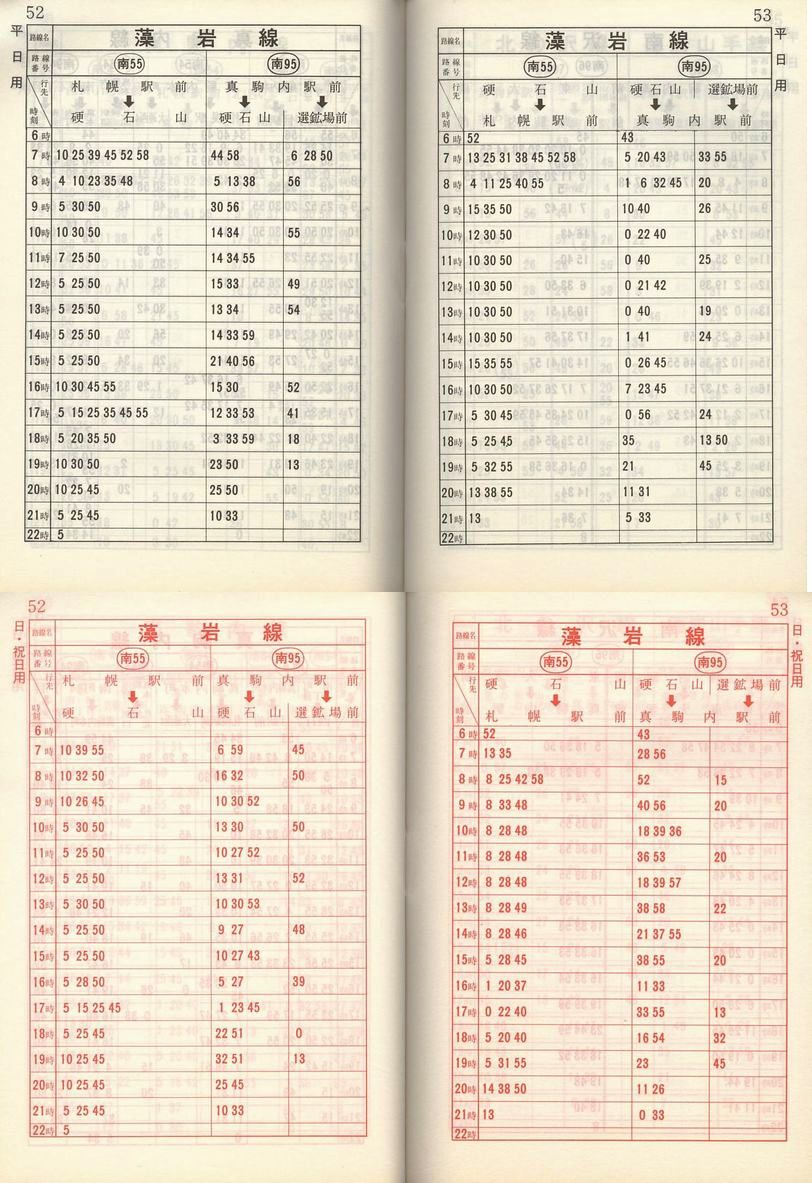 52
平日用
路線名 藻岩線
路線番号 南55 南95
行先 札幌駅前 真駒内駅前
時刻 硬石山 硬石山 選鉱場前
6時
7時 10 25 39 45 52 58 44 58 6 28 50
8時 4 10 23 35 48 5 13 38 56
9時 5 30 50 30 56
10時 10 30 50 14 34 55
11時 7 25 50 14 34 55
12時 5 25 50 15 33 49
13時 5 25 50 13 34 54
14時 5 25 50 14 33 59
15時 5 25 50 21 40 56
16時 10 30 45 55 15 30 52
17時 5 15 25 35 45 55 12 33 53 41
18時 5 20 35 50 3 33 59 18
19時 10 30 50 23 50 13
20時 10 25 45 25 50
21時 5 25 45 10 33
22時 5
53
平日用
路線名 藻岩線
路線番号 南55 南95
行先 硬石山 硬石山 選鉱場前
時刻 札幌駅前 真駒内駅前
6時 52 43
7時 13 25 31 38 45 52 58 5 20 43 33 55
8時 4 11 25 40 55 1 6 32 45 20
9時 15 35 50 10 40 26
10時 12 30 50 0 22 40
11時 10 30 50 0 40 25
12時 10 30 50 0 21 42
13時 10 30 50 0 40 19
14時 10 30 50 1 41 24
15時 15 35 55 0 26 45
16時 10 30 50 7 23 45
17時 5 30 45 0 56 24
18時 5 25 45 35 13 50
19時 5 32 55 21 45
20時 13 38 55 11 31
21時 13 5 33
22時
52
日・祝日用
路線名 藻岩線
路線番号 南55 南95
行先 札幌駅前 真駒内駅前
時刻 硬石山 硬石山 選鉱場前
6時
7時 10 39 55 6 59 45
8時 10 32 50 16 32 50
9時 10 26 45 10 30 52
10時 5 30 50 13 30 50
11時 5 25 50 10 27 52
12時 5 25 50 13 31 52
13時 5 30 50 10 30 53
14時 5 25 50 9 27 48
15時 5 25 50 10 27 43
16時 5 28 50 5 27 39
17時 5 15 25 45 1 23 45
18時 5 25 45 22 51 0
19時 10 25 45 32 51 13
20時 10 25 45 25 45
21時 5 25 45 10 33
22時 5
53
日・祝日用
路線名 藻岩線
路線番号 南55 南95
行先 硬石山 硬石山 選鉱場前
時刻 札幌駅前 真駒内駅前
6時 52 43
7時 13 35 28 56
8時 8 25 42 58 52 15
9時 8 33 48 40 56 20
10時 8 28 48 18 39 36
11時 8 28 48 36 53 20
12時 8 28 48 18 39 57
13時 8 28 49 38 58 22
14時 8 28 46 21 37 55
15時 5 28 45 38 55 20
16時 1 20 37 11 33
17時 0 22 40 33 55 13
18時 5 20 40 16 54 32
19時 5 31 55 23 45
20時 14 38 50 11 26
21時 13 0 33
22時